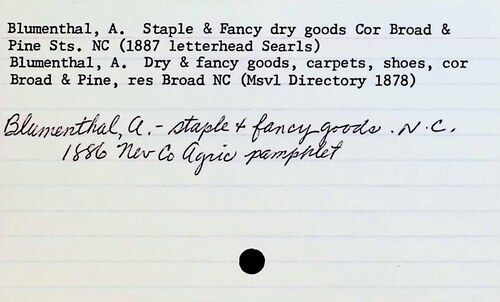 Blumenthal, A.  Staple & Fancy dry goods Cor Broad &
Pine Sts. NC (1887 letterhead Searls)
Blumenthal, A.  Dry & fancy goods, carpets, shoes, cor
Broad & Pine, res Broad NC (Msvl Directory 1878)
Blumenthal, A. - staple & fancy goods . N.C.
1886 Nev Co Agric pamphlet